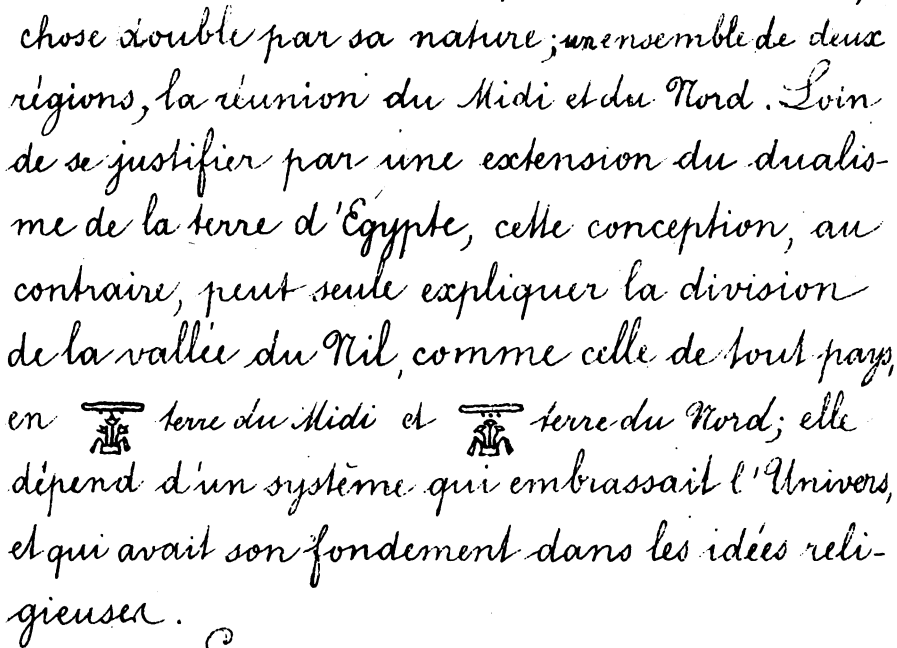 chose double par sa nature; un ensemble de deux
régions, la réunion du Midi et du Nord. Loin
de se justifier par une extension du dualis-
me de la terre d'Égypte, cette conception, au
contraire, peut seule expliquer la division
de la vallée du Nil, comme celle de tout pays,
en terre du Midi et terre du Nord; elle
dépend d'un système qui embrassait l'Univers,
et qui avait son fondement dans les idées reli-
gieuses.